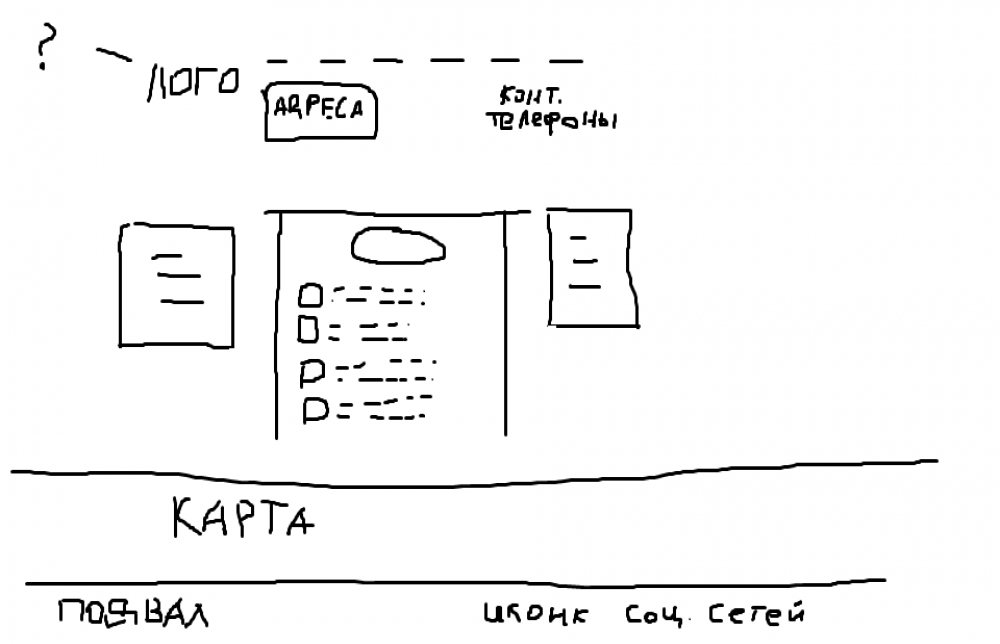 ?
ЛОГО
АДРЕСА
КОНТ.
ТЕЛЕФОНЫ
КАРТА
ПОДВАЛ
ИКОНК СОЦ. СЕТЕЙ